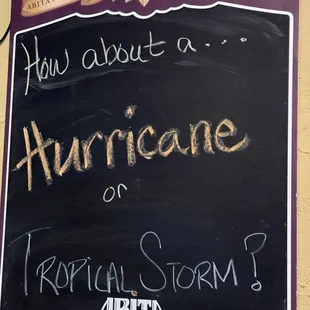 ABITA
How about a...
Hurricane
or
TROPICAL STORM?
ABITA